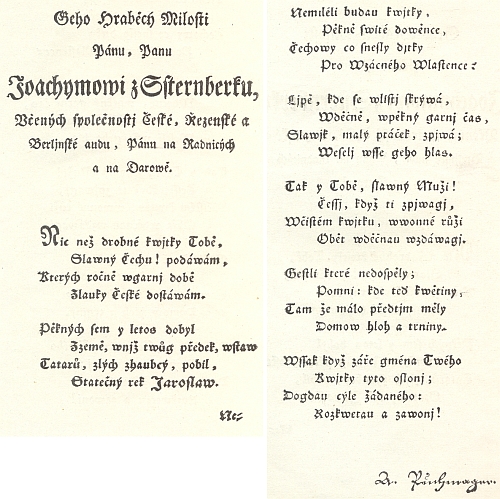 Geho Hraběcý Milosti
Pánu, Panu
Joachymowi z Ssternberku,
Včených společnostj České, Řezenské a
Berljnské audu, Pánu na Radnicých
a na Darowě.
Nic než drobné kwjtky Tobě,
Slawný Čechu! podáwám,
Kterých ročně wgarnj době
Zlauky České dostáwám.
Pěkných sem y letos dobyl
Zzemě, wnjž twůg předek, wstaw
Tatarů, zlých zhaubcý, pobil,
Statečný rek Jaroslaw.
Ne=
Nemiléli budau kwjtky,
Pěkně swité dowěnce,
Čechowy co snesly djtky
Pro Wzácného Wlastence?
Ljpě, kde se wljstj skrýwá,
Wděčně, wpěkný garnj čas,
Slawjk, malý ptáček, zpjwá;
Weselj wsse geho hlas.
Tak y Tobě, slawný Muži!
Čessj, když ti zpjwagj,
Wčistém kwjtku, wwonné růži
Obět wděčnau wzdáwagj.
Gestli které nedospěly;
Pomni: kde teď kwětiny,
Tam že málo předtjm měly
Domow hloh a trniny.
Wssak když záře gména Twého
Kwjtky tyto oslonj;
Dogdau cýle žádaného:
Rozkwetau a zawonj!
A. Puchmager.